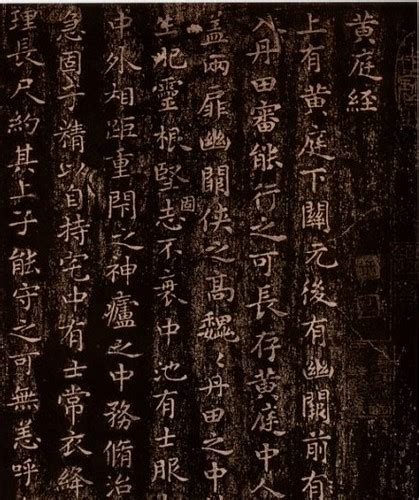 黄庭經
上有黄庭下關元後有幽闕前有
入丹田審能行之可長存黄庭中人
盖兩扉幽闕俠之高魏〻丹田之中
生肥靈根堅固志不衰中池有士服
中外相距重閇之神廬之中務脩治
急固子精以自持宅中有士常衣絳
理長尺約其上子能守之可無恙呼